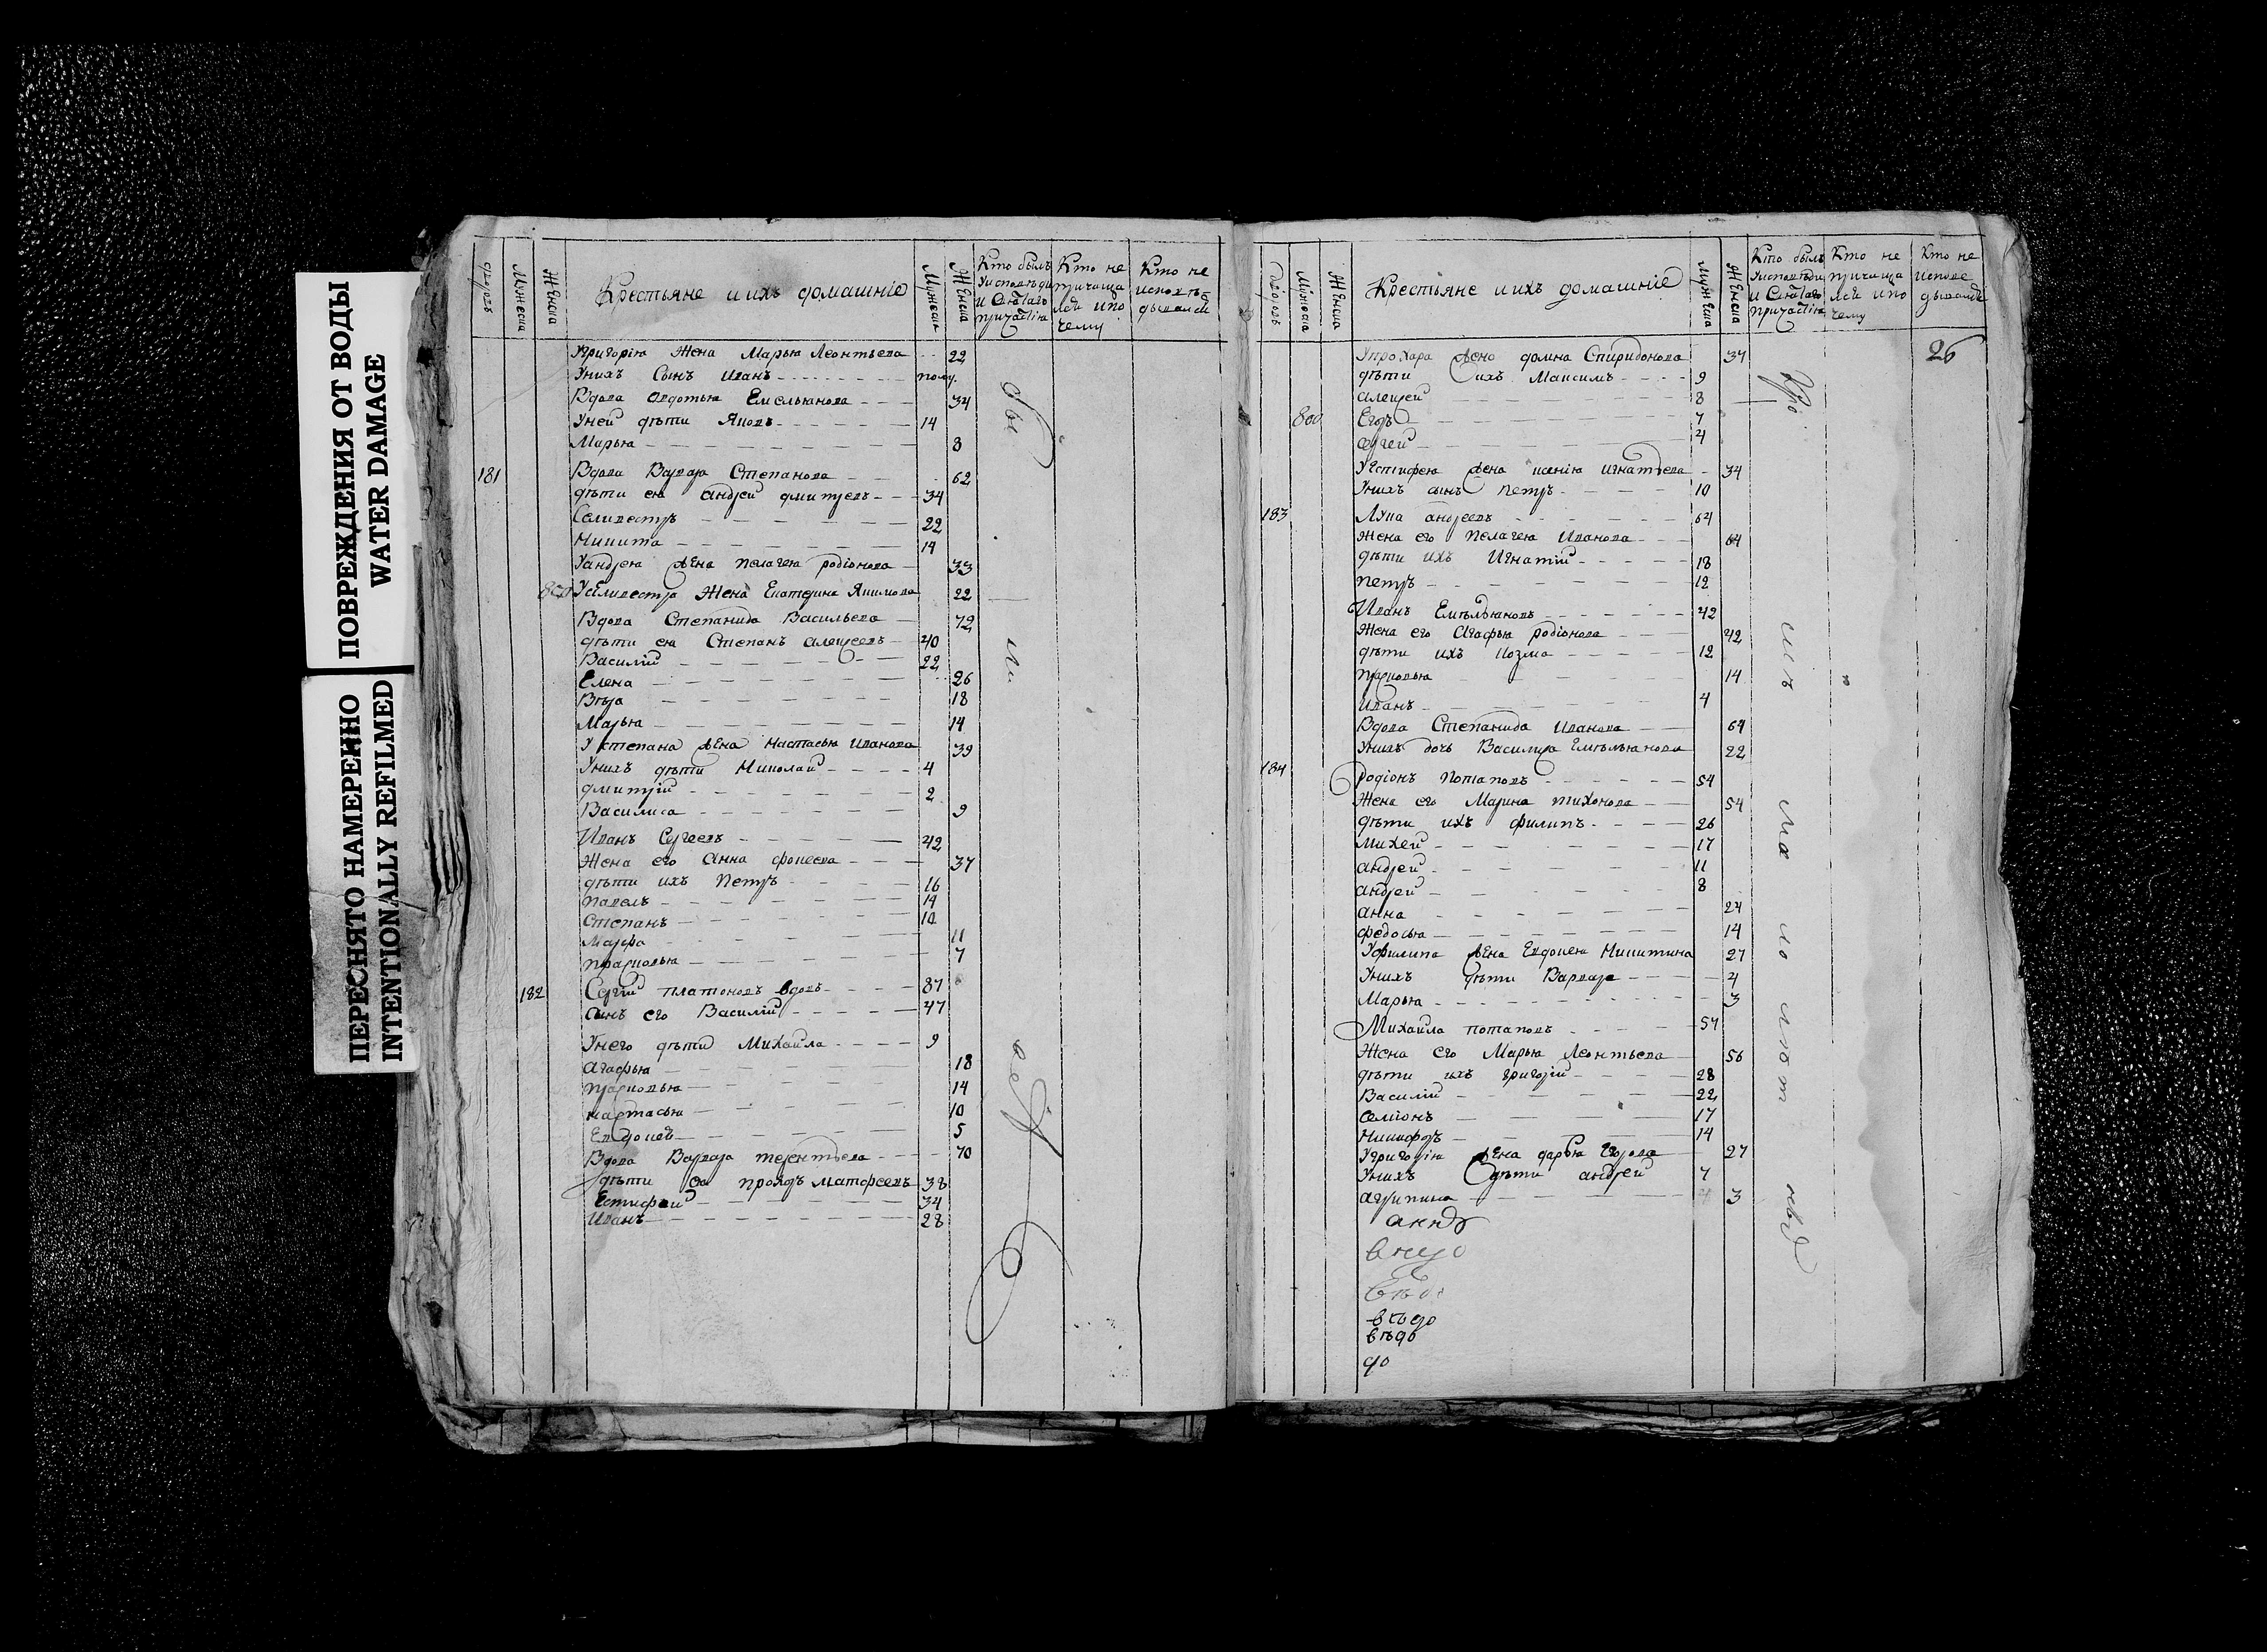 ПОВРЕЖДЕНИЯ ОТ ВОДЫ
WATER DAMAGE
ПЕРЕСНЯТО НАМЕРЕННО
INTENTIONALLY REFILMED
Мужеска
Женска
Крестьяне и ихъ домашнiе
Мужеска
Женска
Кто былъ
и Святаго
причастiя
Кто не
причаща
лся и по
чему
Кто не
исповѣ
дывался
Угригорiя Жена Марья Леонтьева 22
Унихъ Сынъ иванъ полу.
Вдова авдотья Емельянова 34
Уней дѣти Яковъ 14
Марья 8
181 Вдова Варвара Степанова 62
дѣти ея андрей дмитревъ 34
Селивестръ 22
Никита 14
Уандрея жена пелагея родiонова 33
Уселивестра Жена Екатерина Якимова 22
Вдова Степанида Васильева 72
дѣти ея Степанъ алексеевъ 40
Василiй 22
Елена 26
Вѣра 18
Марья 14
Устепана жена настасья иванова 39
Унихъ дѣти Николай 4
дмитрiй 2
Василиса 9
Иванъ Сергеевъ 42
Жена его анна фокеева 37
дѣти ихъ петръ 16
павелъ 14
степанъ 10
марфа 11
прасковья 7
182 Сергiй платоновъ вдовъ 87
сынъ его Василiй 47
Унего дѣти Михайла 9
агафья 18
прасковья 14
настасья 10
Евдокея 5
Вдова Варвара терентьева 70
дѣти ея прохоръ матфеевъ 38
Естифей 34
иванъ 28
Мужеска
Женска
Крестьяне и ихъ домашнiе
Мужеска
Женска
Кто былъ
и Святаго
причастiя
Кто не
причаща
лся и по
чему
Кто не
испове
дывался
26
Упрохара жена домна Спиридонова 37
дѣти ихъ Максимъ 9
алексей 8
800 Егоръ 7
сергей 4
Уестифея жена ксенiя игнатьева 34
Унихъ сынъ петръ 10
183 Лука андреевъ 64
Жена его пелагея иванова 64
дѣти ихъ Игнатiй 18
петръ 12
Иванъ Емельяновъ 42
Жена его агафья родiонова 42
дѣти ихъ козма 12
прасковья 14
иванъ 4
Вдова Степанида иванова 64
Унихъ дочь Василиса Емельянова 22
184 Родiонъ потаповъ 54
Жена его Марина тихонова 54
дѣти ихъ филипъ 26
михей 17
андрей 11
андрей 8
анна 24
федосья 14
Уфилипа жена Евдокея Никитина 27
Унихъ дѣти Варвара 4
Марья 3
Михайла потаповъ 57
Жена его Марья Леонтьева 56
дѣти ихъ григорiй 28
Василiй 22
семiонъ 17
Никифоръ 14
Угригорiя жена дарья Егорова 27
Унихъ дѣти андрей 7
агрипина 3
до